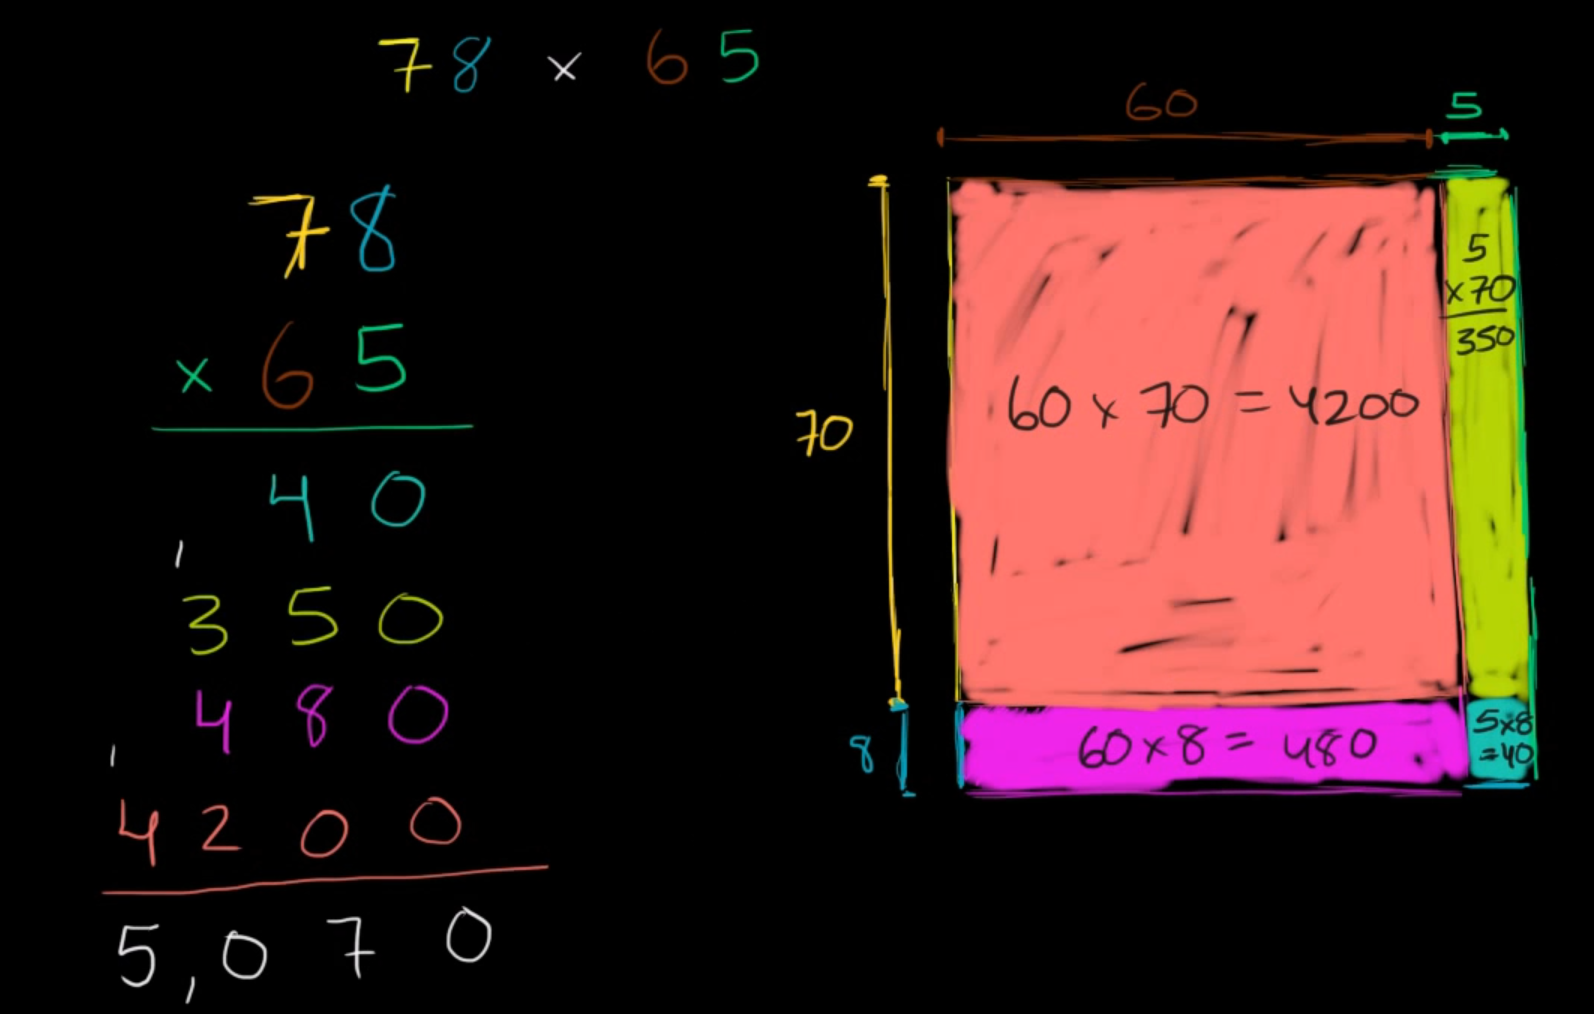 78 × 65
78
× 65
40
1
350
480
1
4200
5,070
60
5
70
8
60 × 70 = 4200
5
×70
350
60×8 = 480
5×8
=40